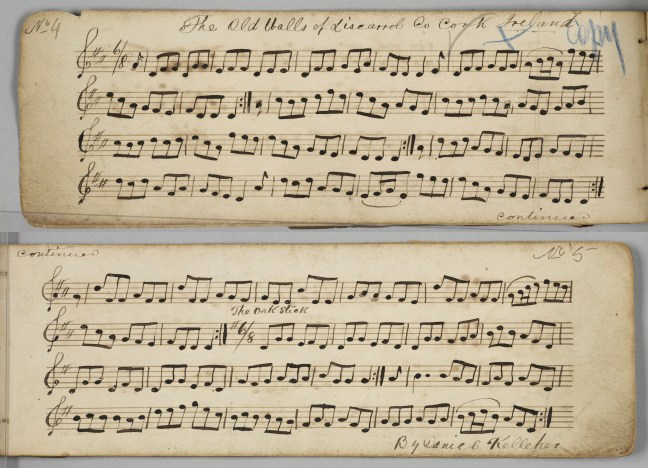 No 4 The Old Walls of Liscarrol Co Cork Ireland Copy
6/8
continued
continued No 5
The Oak Stick
6/8
By Daniel Kelleher